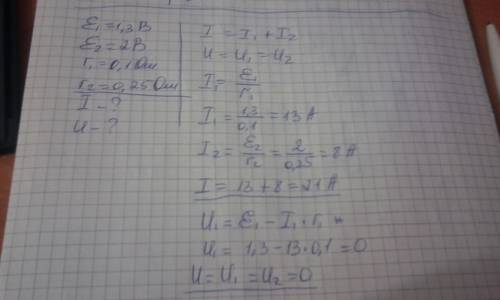 ℰ₁ = 1,3 В
ℰ₂ = 2 В
r₁ = 0,1 Ом
r₂ = 0,25 Ом
I - ?
U - ?
I = I₁ + I₂
U = U₁ = U₂
I₁ = ℰ₁/r₁
I₁ = 1,3/0,1 = 13 А
I₂ = ℰ₂/r₂ = 2/0,25 = 8 А
I = 13 + 8 = 21 А
U₁ = ℰ₁ - I₁ · r₁
U₁ = 1,3 - 13 · 0,1 = 0
U = U₁ = U₂ = 0